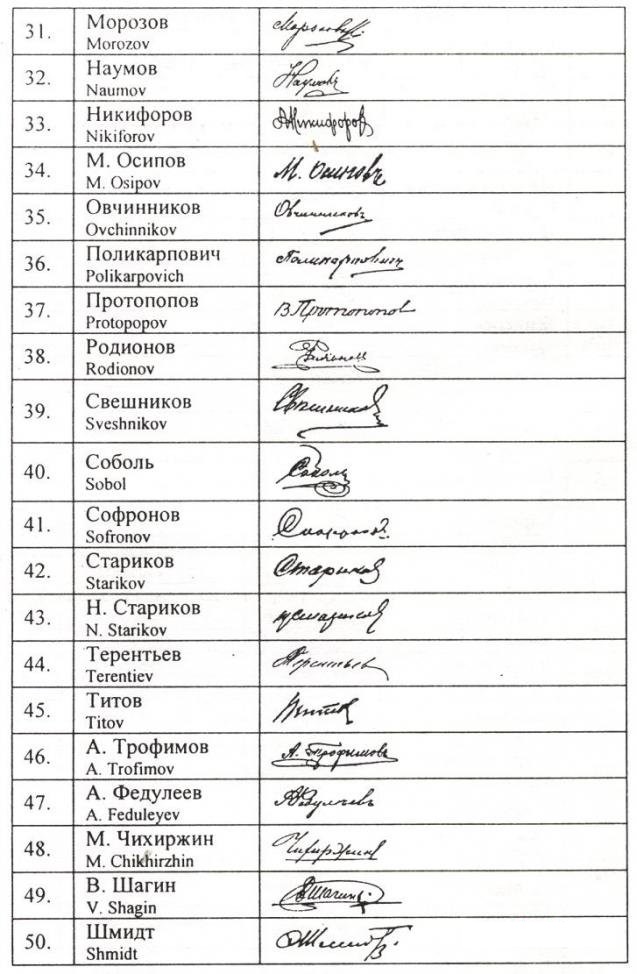 31. Морозов
Morozov
32. Наумов
Naumov
Наумовъ
33. Никифоров
Nikiforov
Никифоров
34. М. Осипов
M. Osipov
М. Осиповъ
35. Овчинников
Ovchinnikov
Овчинниковъ
36. Поликарпович
Polikarpovich
Поликарпович
37. Протопопов
Protopopov
В Протопопов
38. Родионов
Rodionov
39. Свешников
Sveshnikov
Свешников
40. Соболь
Sobol
Соболь
41. Софронов
Sofronov
42. Стариков
Starikov
Стариков
43. Н. Стариков
N. Starikov
44. Терентьев
Terentiev
Терентьев
45. Титов
Titov
46. А. Трофимов
A. Trofimov
А. Трофимовъ
47. А. Федулеев
A. Feduleyev
48. М. Чихиржин
M. Chikhirzhin
Чихиржин
49. В. Шагин
V. Shagin
50. Шмидт
Shmidt